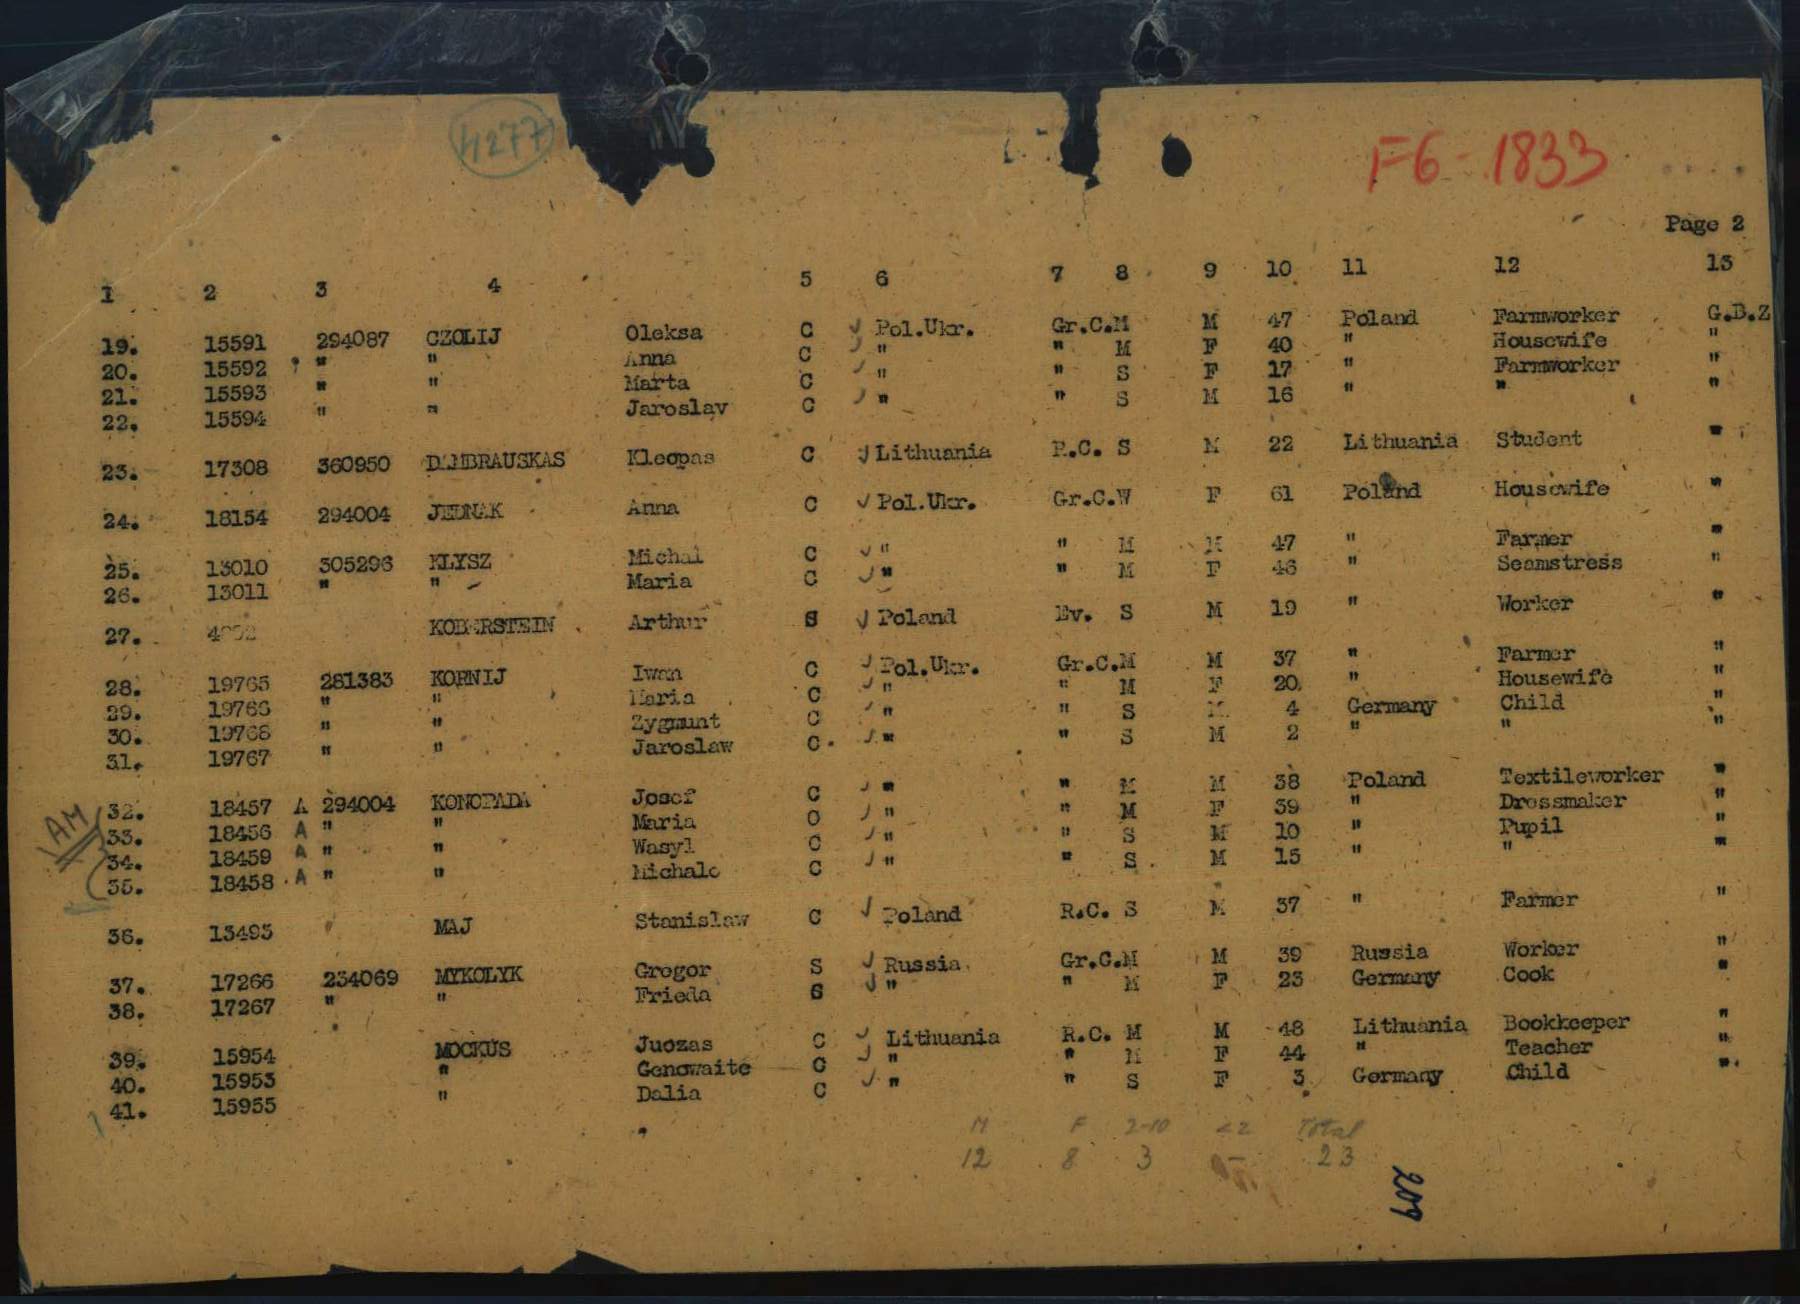 4277
F6-1833
Page 2
1 2 3 4 5 6 7 8 9 10 11 12 13
19. 15591 294087 CZOLIJ Oleksa C Pol.Ukr. Gr.C.M M 47 Poland Farmworker G.B.Z
20. 15592 " " Anna C " " M F 40 " Housewife "
21. 15593 " " Marta C " " S F 17 " Farmworker "
22. 15594 " " Jaroslav C " " S M 16 " " "
23. 17308 360950 DAMBRAUSKAS Kleopas C Lithuania R.C. S M 22 Lithuania Student "
24. 18154 294004 JEDNAK Anna C Pol.Ukr. Gr.C.W F 61 Poland Housewife "
25. 13010 305296 KLYSZ Michal C " " M M 47 " Farmer "
26. 13011 " " Maria C " " M F 46 " Seamstress "
27. KOBERSTEIN Arthur S Poland Ev. S M 19 " Worker "
28. 19765 281383 KORNIJ Iwan C Pol.Ukr. Gr.C.M M 37 " Farmer "
29. 19766 " " Maria C " " M F 20 " Housewife "
30. 19768 " " Zygmunt C " " S M 4 Germany Child "
31. 19767 " " Jaroslaw C " " S M 2 " " "
AM
32. 18457 A 294004 KONOPADA Josef C " " M M 38 Poland Textileworker "
33. 18456 A " " Maria C " " M F 39 " Dressmaker "
34. 18459 A " " Wasyl C " " S M 10 " Pupil "
35. 18458 A " " Michalo C " " S M 15 " " "
36. 13493 MAJ Stanislaw C Poland R.C. S M 37 " Farmer "
37. 17266 234069 MYKOLYK Gregor S Russia Gr.C.M M 39 Russia Worker "
38. 17267 " " Frieda S " " M F 23 Germany Cook "
39. 15954 MOCKUS Juozas C Lithuania R.C. M M 48 Lithuania Bookkeeper "
40. 15953 " Genowaite C " " M F 44 " Teacher "
41. 15955 " Dalia C " " S F 3 Germany Child "
M F 2-10 <2 Total
12 8 3 23
209